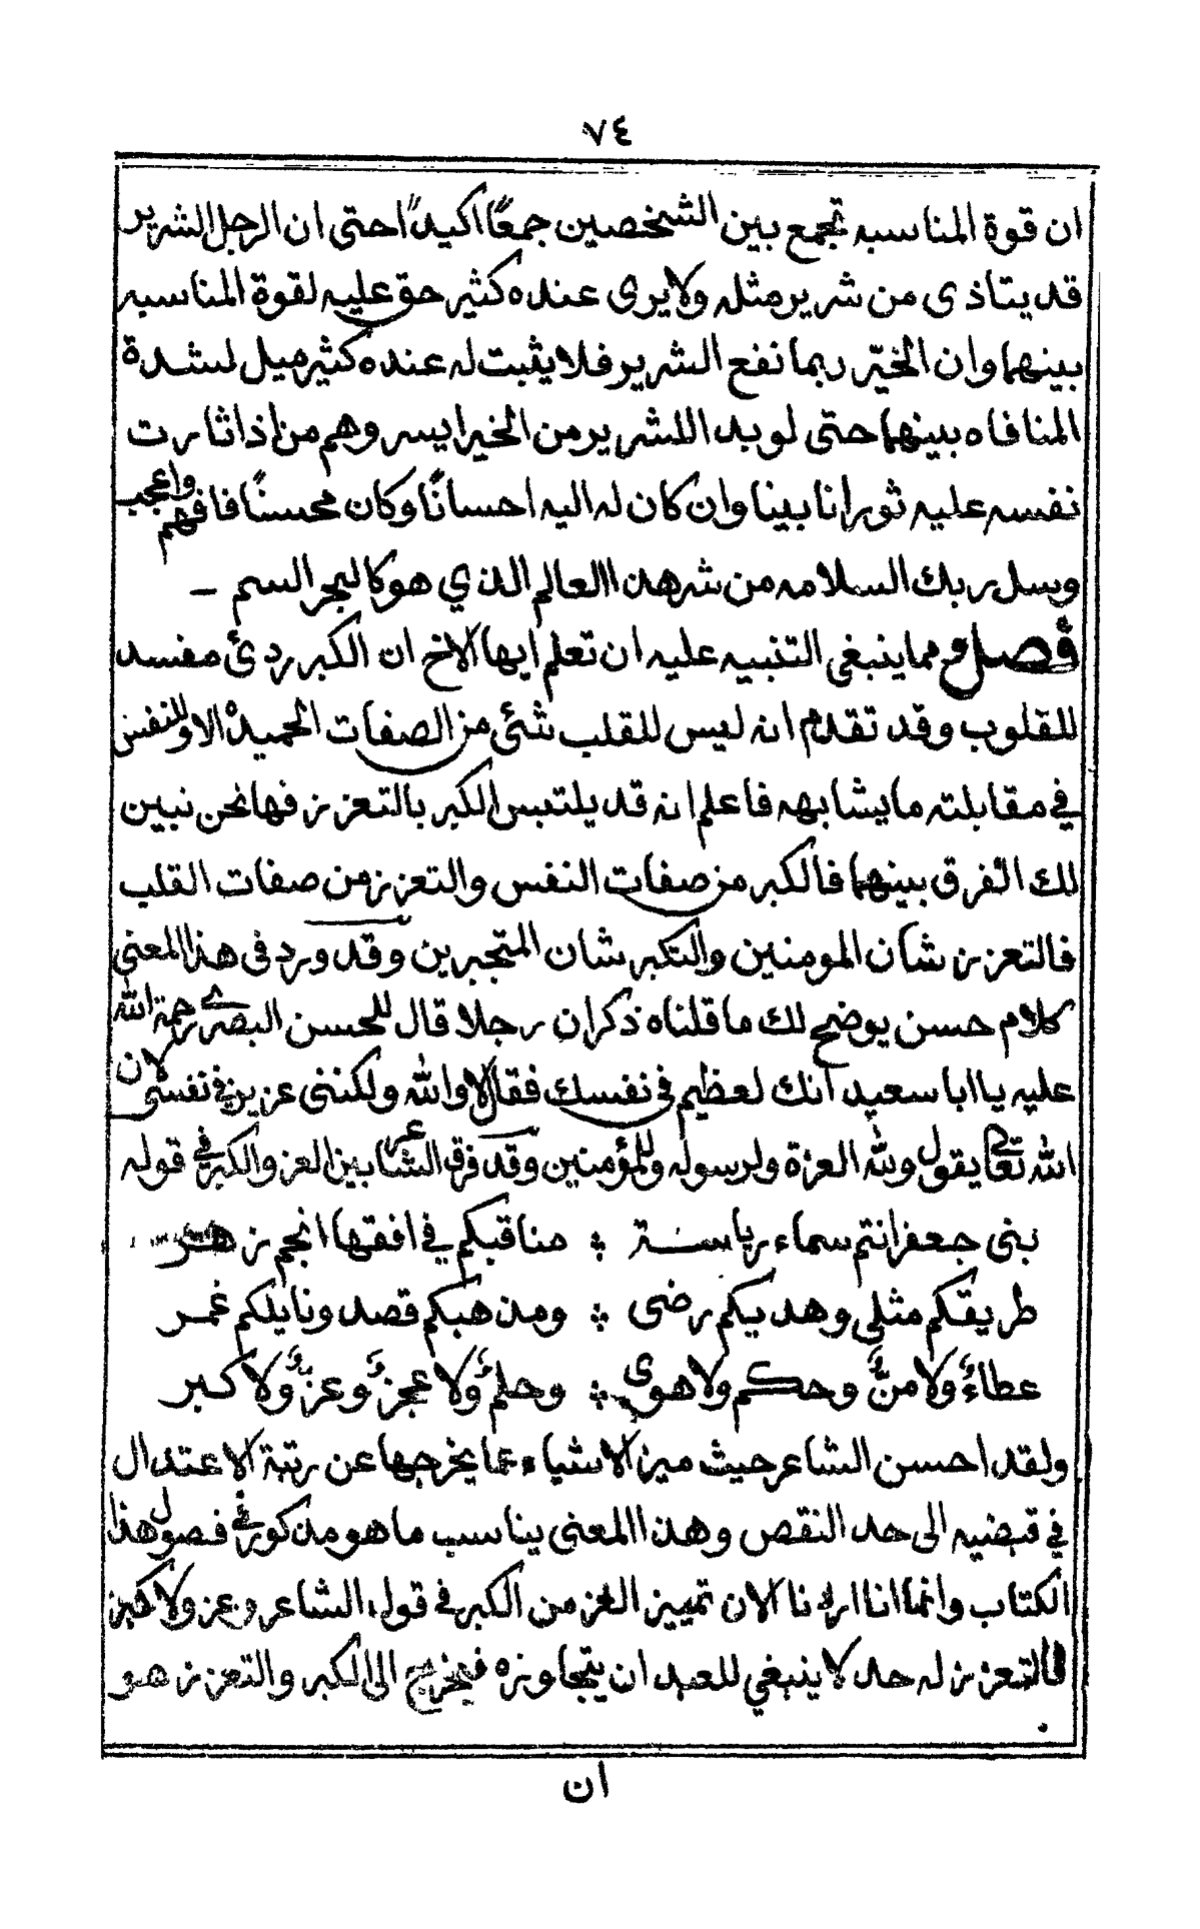 ٧٤
ان قوة المناسبه تجمع بين الشخصين جمعًا اكيدًا حتى ان الرجل الشرير
قد يتاذى من شرير مثله ولا يرى عنده كثير حق عليه لقوة المناسبه
بينهما وان الخيّر ربما نفع الشرير فلا يثبت له عنده كثير ميل لشدة
المنافاه بينهما حتى لو بدا للشرير من الخير ايسر وهم من اذا ثارت
نفسه عليه ثورانا بينا وان كان له اليه احسانًا وكان محسنًا فافهم واعجب
وسل ربك السلامه من شر هذا العالم الذي هو كالبحر السم –
فصل ومما ينبغي التنبيه عليه ان تعلم ايها الاخ ان الكبر ردئ مفسد
للقلوب وقد تقدم انه ليس للقلب شئ من الصفات الحميدة الا وللنفس
في مقابلته ما يشابهه فاعلم انه قد يلتبس الكبر بالتعزز فها نحن نبين
لك الفرق بينهما فالكبر من صفات النفس والتعزز من صفات القلب
فالتعزز شان المومنين والتكبر شان المتجبرين وقد ورد في هذا المعنى
كلام حسن يوضح لك ما قلناه ذكر ان رجلا قال للحسن البصري رحمة الله
عليه يا ابا سعيد انك لعظيم في نفسك فقال لا والله ولكننى عزيز في نفسى لان
الله تعالى يقول ولله العزة ولرسوله وللمؤمنين وقد فرق الشاعر بين العز والكبر في قوله
بنى جعفر انتم سماء رياسة ؞ مناقبكم في افقها انجم زهر
طريقكم مثلى وهديكم رضى ؞ ومذهبكم قصد ونايلكم غمر
عطاءٌ ولا منٌّ وحكم ولا هوى ؞ وحلمٌ ولا عجزٌ وعزٌّ ولا كبر
ولقد احسن الشاعر حيث ميز الاشياء عما يخرجها عن رتبة الاعتدال
في قبضيه الى حد النقص وهذا المعنى يناسب ما هو مذكور في فصول هذا
الكتاب وانما انا اردنا الان تمييز العز من الكبر في قول الشاعر وعز ولا كبر
فالتعزز له حد لا ينبغي للعبد ان يتجاوزه فيخرج الى الكبر والتعزز هو
ان